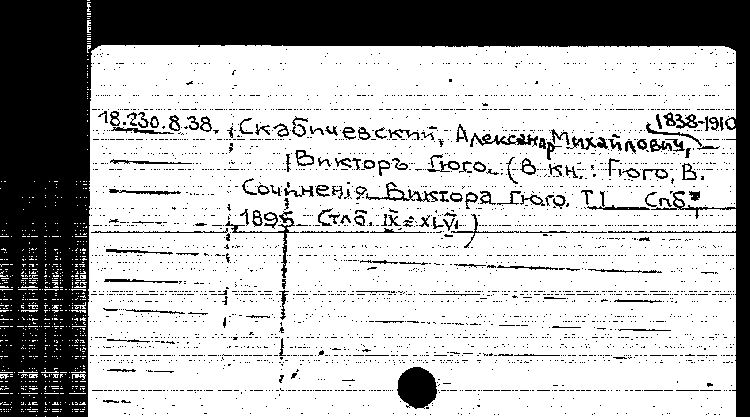 1838-1910
18.230.8.38. Скабичевский, Александр Михайлович,
Викторъ Гюго. (В кн.: Гюго, В.
Сочиненія Виктора Гюго. Т.I. Спб.
1895. Стлб. IX = XLVI)